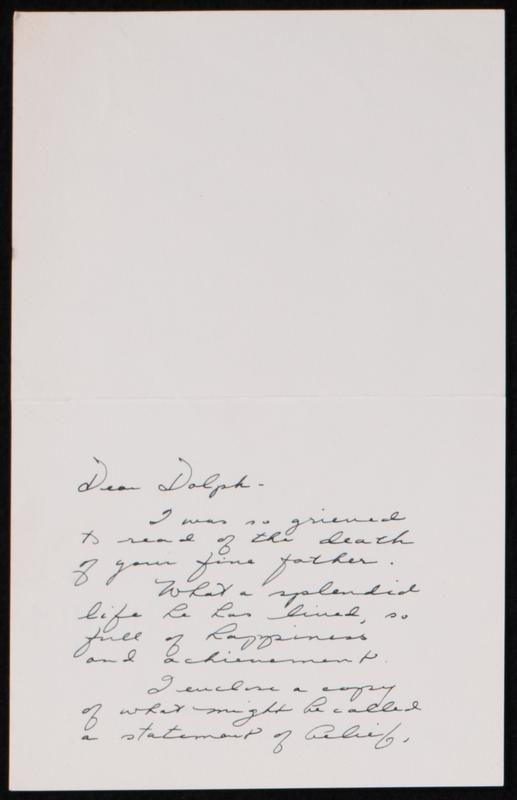 Dear Dolph -
I was so grieved
to read of the death
of your fine father.
What a splendid
life he has lived, so
full of happiness
and achievement.
I enclose a copy
of what might be called
a statement of belief,